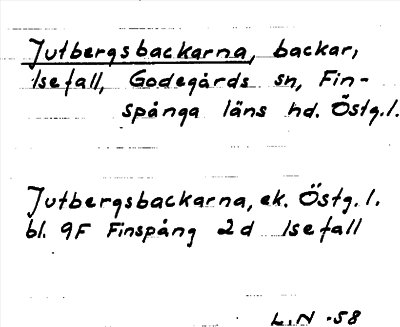 Jutbergsbackarna, backar,
Isefall, Godegårds sn, Fin-
spånga läns hd. Östg.l.
Jutbergsbackarna, ek. Östg. l.
bl. 9F Finspång 2d Isefall
L.N -58